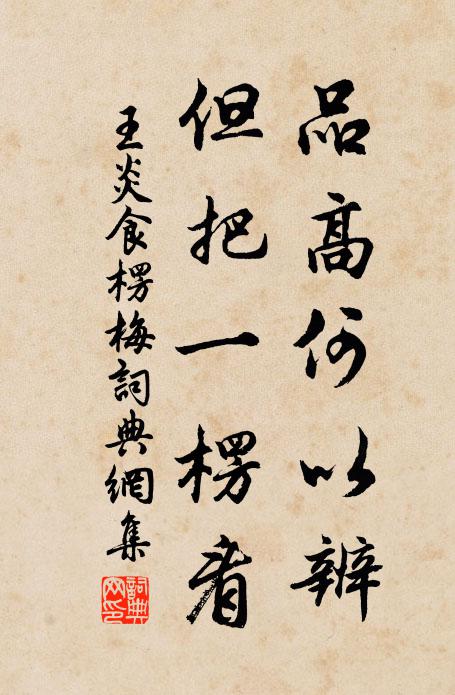 品高何以辨
但把一楞看
王炎食楞梅詞典網集
詞典網印